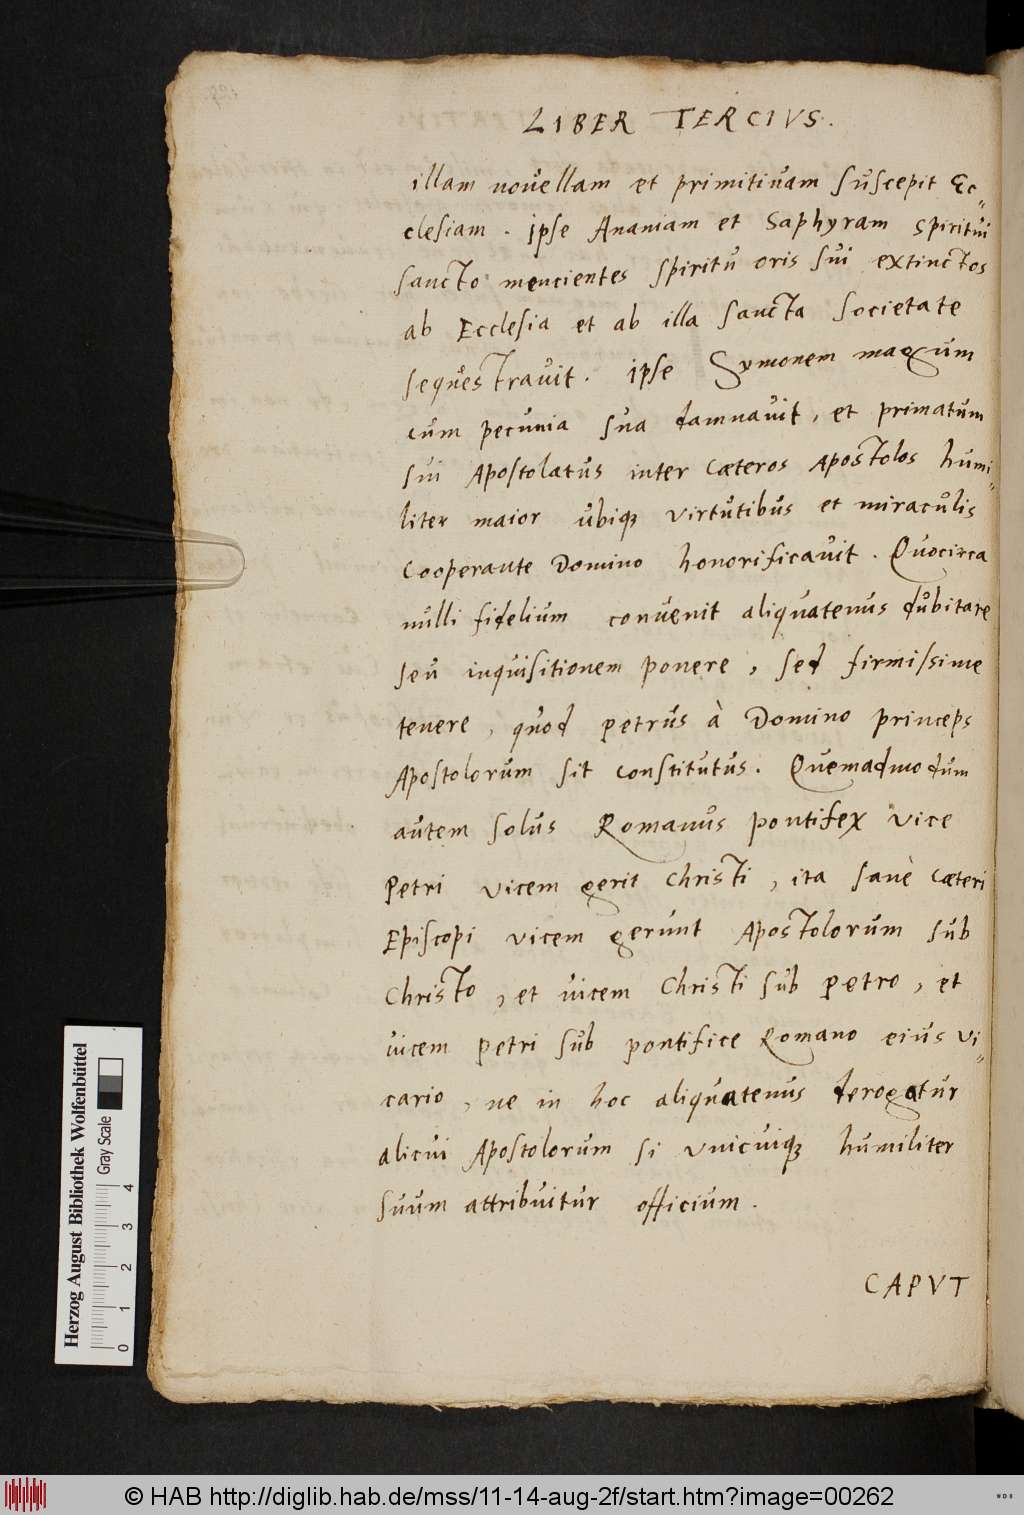 LIBER TERCIVS.
illam novellam et primitivam suscepit Ec=
clesiam. ipse Ananiam et Saphyram spiritui
sancto mencientes spiritu oris sui extinctos
ab Ecclesia et ab illa sancta societate
sequestravit. ipse Symonem magum
cum pecunia sua damnavit, et primatum
sui Apostolatus inter cæteros Apostolos humi=
liter maior ubiq; virtutibus et miraculis
cooperante Domino honorificavit. Quocirca
nulli fidelium convenit aliquatenus dubitare
seu inquisitionem ponere, sed firmissime
tenere, quod petrus à Domino princeps
Apostolorum sit constitutus. Quemadmodum
autem solus Romanus pontifex vice
Petri vicem gerit Christi, ita sanè cæteri
Episcopi vicem gerunt Apostolorum sub
Christo, et vicem Christi sub petro, et
vicem petri sub pontifice Romano eius vi=
cario, ne in hoc aliquatenus derogatur
alicui Apostolorum si unicuiq; humiliter
suum attribuitur officium.
CAPVT
Herzog August Bibliothek Wolfenbüttel
Gray Scale
0 1 2 3 4
© HAB http://diglib.hab.de/mss/11-14-aug-2f/start.htm?image=00262